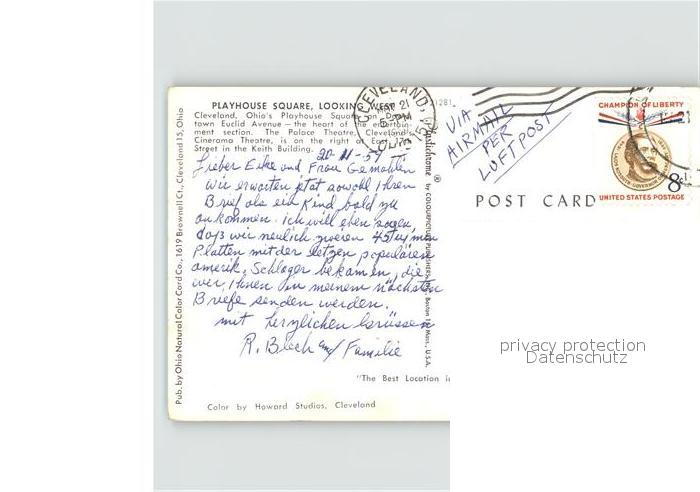 PLAYHOUSE SQUARE, LOOKING WEST
Cleveland, Ohio's Playhouse Square on Down-
town Euclid Avenue — the heart of the entertain-
ment section. The Palace Theatre, Cleveland's
Cinerama Theatre, is on the right at East
Street in the Keith Building.
Lieber Eike und Frau Gemahlin
Wir erwarten jetzt sowohl Ihren
Brief als ein Kind bald zu
ankommen. Ich will eben sagen,
daß wir neulich zweien 45
Platten mit der letzen populären
amerik. Schlager bekamen, die
wir Ihnen in meinem nächsten
Briefe senden werden.
mit herzlichen Grüssen
R. Blech und Familie
"The Best Location i
Color by Howard Studios, Cleveland
Pub. by Ohio Natural Color Card Co., 1619 Brownell Ct., Cleveland 15, Ohio
Plastichrome ® by COLOURPICTURE PUBLISHERS, Boston Mass., U.S.A.
CLEVELAND,
21
PM
VIA
AIRMAIL
PER
LUFTPOST
POST CARD
CHAMPION OF LIBERTY
8¢
UNITED STATES POSTAGE
privacy protection
Datenschutz